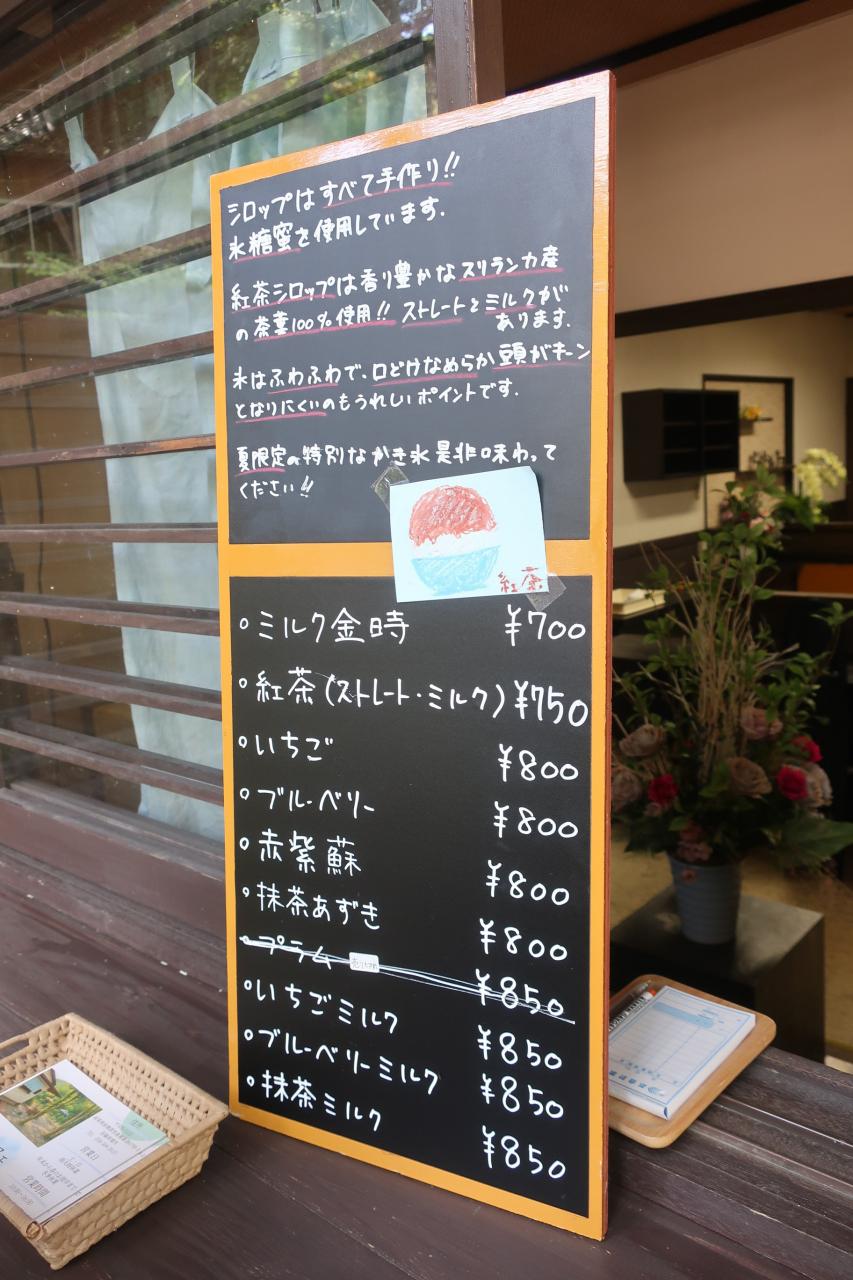 シロップはすべて手作り!!
氷糖蜜を使用しています.
紅茶シロップは香り豊かなスリランカ産
の茶葉100%使用!! ストレートとミルクが
あります.
氷はふわふわで、口どけなめらか頭がキーン
となりにくいのもうれしいポイントです.
夏限定の特別なかき氷是非味わって
ください!!
紅茶
○ミルク金時 ¥700
○紅茶(ストレート・ミルク) ¥750
○いちご ¥800
○ブルーベリー ¥800
○赤紫蘇 ¥800
○抹茶あずき ¥800
○プラム ¥850
○いちごミルク ¥850
○ブルーベリーミルク ¥850
○抹茶ミルク ¥850
営業日
営業時間